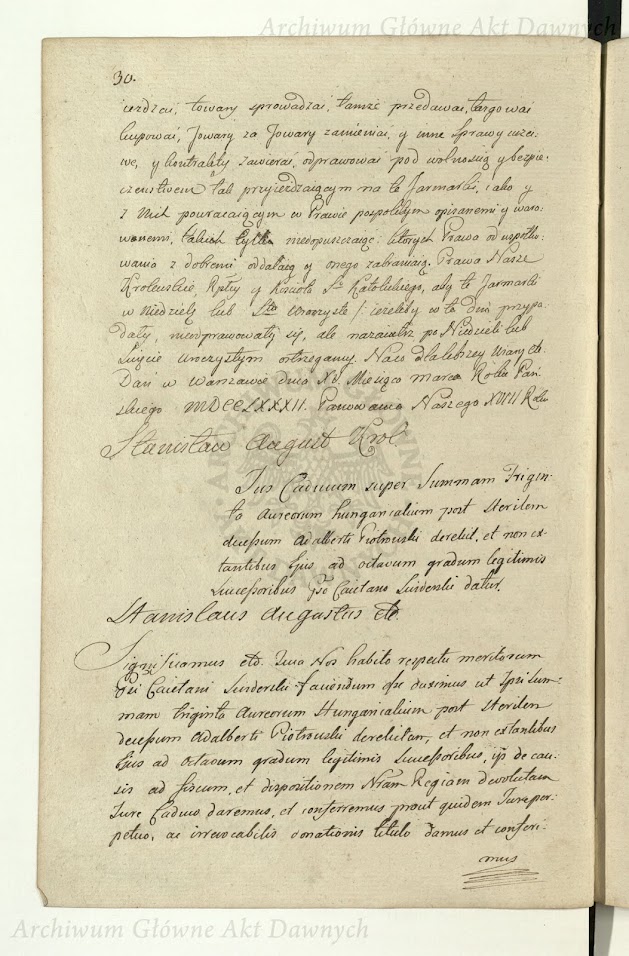 Archiwum Główne Akt Dawnych
30.
ierdzai, towary sprowadzai, tamże przedawai, targowai
kupowai, Towary za Towary zamieniai, y inne Sprawy uczci-
we, y kontrakty zawierai, odprawowai pod wolnoscią y bezpie-
czenstwem tak przyierdzaiącym na te Jarmarki, iako y
z nich powracaiącym w Prawie pospolitym opisanemi y waro-
wanemi, takich tylko niedopuszczaiąc, ktorych Prawo od
z dobremi oddalaią y onego zabraniaią. Prawa Nasze
Krolewskie, y Kościoła S. Katolickiego, aby te Jarmarki
w niedzielę lub Sto Uroczyste /: ieżeleby w te dni przypa-
dały, nieodprawowały się, ale nazaiutrz po Niedzieli lub
Swięcie uroczystym ostrzegamy. Naco dla lepszey wiary etc.
Dan w Warszawie dnia XV. Miesiąca marca Roku Pań-
skiego MDCCLXXXII. Panowania Naszego XVIII Roku
Stanisław August Krol
Jus Caducum super Summam Trigin-
ta Aureorum hungaricalium post Sterilem
decessum Adalberti Piotrowski derelict, et non ex-
tantibus Ejus ad octavum gradum legitimis
Successoribus gso Caietano Surderski datur.
Stanislaus Augustus etc.
Significamus etc. Quia Nos habito respectu meritorum
Gsi Caietani Surderski faciendum esse duximus ut Ipsi Sum-
mam triginta Aureorum Hungaricalium post Sterilem
decessum Adalberti Piotrowski derelictam, et non extantibus
Ejus ad octavum gradum legitimis Successoribus, ijs de cau-
sis ad fiscum, et dispositionem Nram Regiam devolutam
Jure Caduco daremus, et conferremus prout quidem Jure per-
petuo, ac irrevocabilis donationis titulo damus et conferi-
mus
Archiwum Główne Akt Dawnych